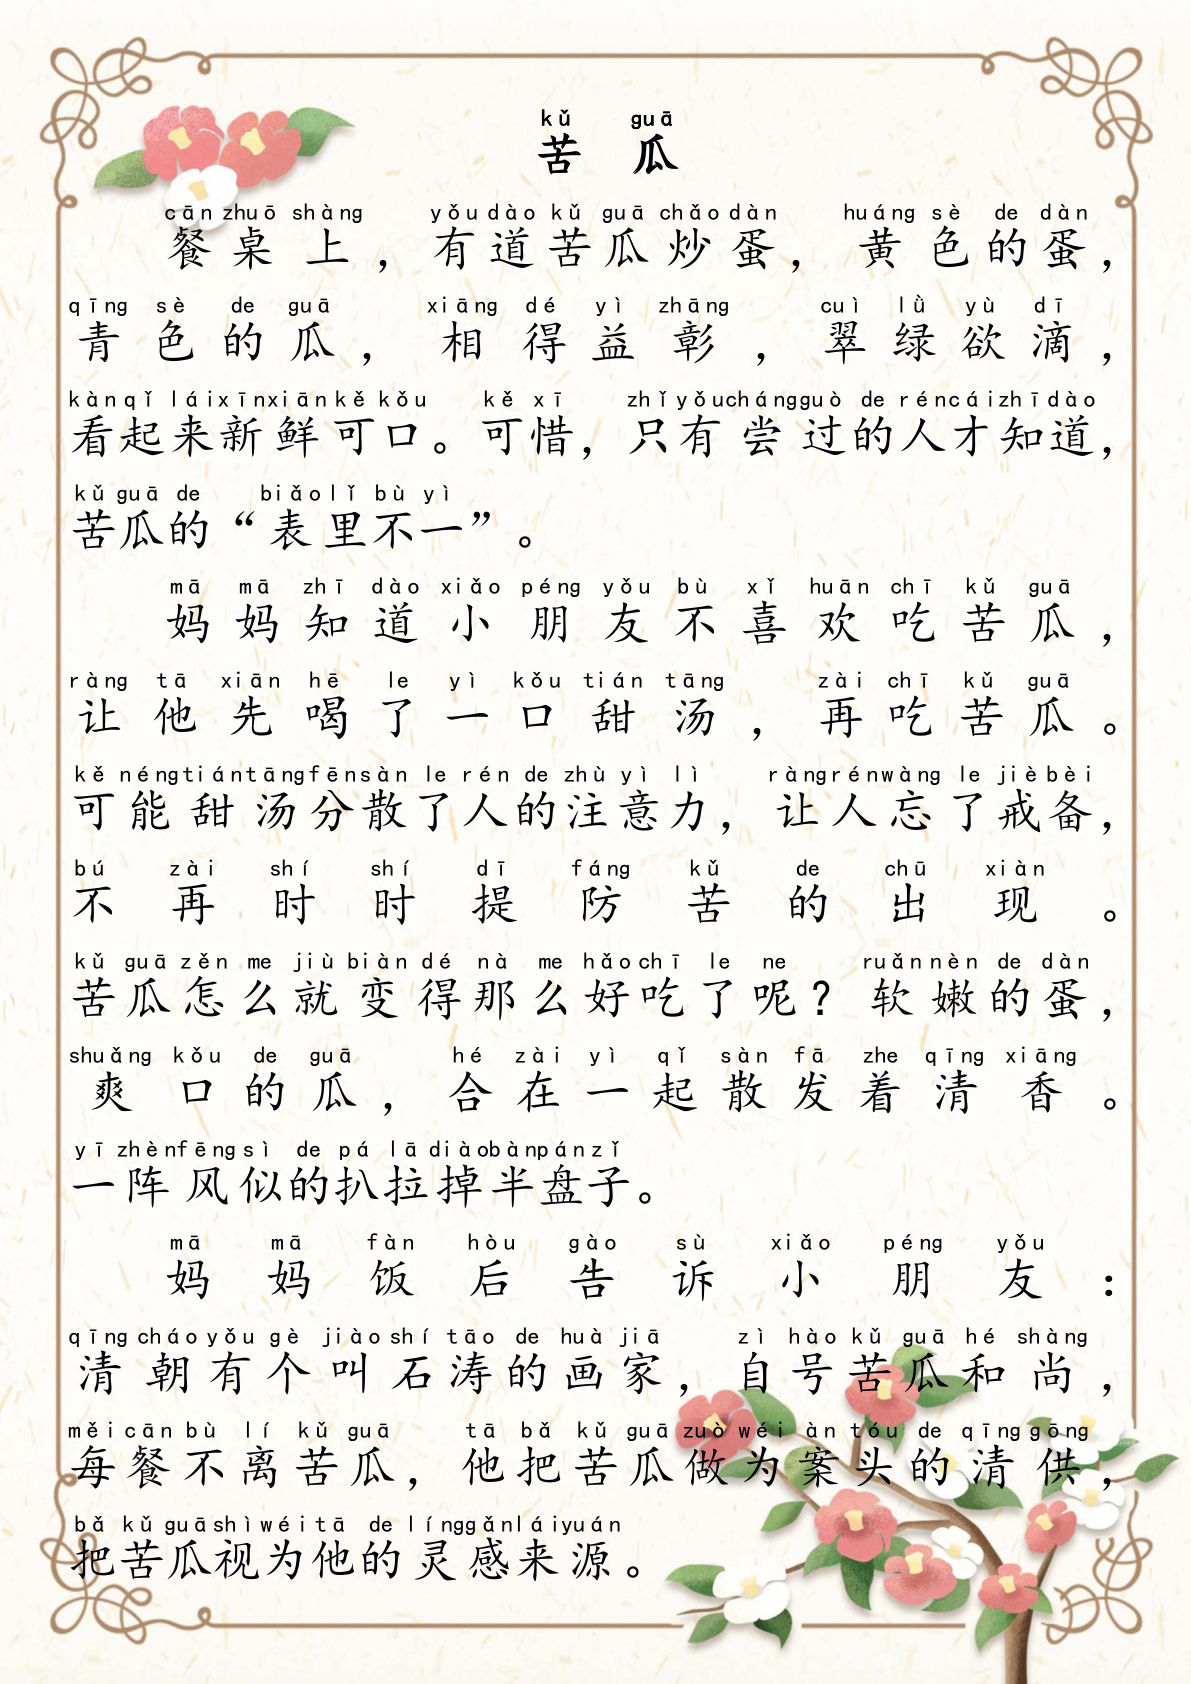 kǔ guā
苦瓜
cān zhuō shàng yǒu dào kǔ guā chǎo dàn huáng sè de dàn
餐桌上，有道苦瓜炒蛋，黄色的蛋，
qīng sè de guā xiāng dé yì zhāng cuì lǜ yù dī
青色的瓜，相得益彰，翠绿欲滴，
kàn qǐ lái xīn xiān kě kǒu kě xī zhǐ yǒu cháng guò de rén cái zhī dào
看起来新鲜可口。可惜，只有尝过的人才知道，
kǔ guā de biǎo lǐ bù yì
苦瓜的“表里不一”。
mā mā zhī dào xiǎo péng yǒu bù xǐ huān chī kǔ guā
妈妈知道小朋友不喜欢吃苦瓜，
ràng tā xiān hē le yì kǒu tián tāng zài chī kǔ guā
让他先喝了一口甜汤，再吃苦瓜。
kě néng tián tāng fēn sàn le rén de zhù yì lì ràng rén wàng le jiè bèi
可能甜汤分散了人的注意力，让人忘了戒备，
bú zài shí shí dī fáng kǔ de chū xiàn
不再时时提防苦的出现。
kǔ guā zěn me jiù biàn dé nà me hǎo chī le ne ruǎn nèn de dàn
苦瓜怎么就变得那么好吃了呢？软嫩的蛋，
shuǎng kǒu de guā hé zài yì qǐ sàn fā zhe qīng xiāng
爽口的瓜，合在一起散发着清香。
yī zhèn fēng sì de pá lā diào bàn pán zǐ
一阵风似的扒拉掉半盘子。
mā mā fàn hòu gào sù xiǎo péng yǒu
妈妈饭后告诉小朋友：
qīng cháo yǒu gè jiào shí tāo de huà jiā zì hào kǔ guā hé shàng
清朝有个叫石涛的画家，自号苦瓜和尚，
měi cān bù lí kǔ guā tā bǎ kǔ guā zuò wéi àn tóu de qīng gōng
每餐不离苦瓜，他把苦瓜做为案头的清供，
bǎ kǔ guā shì wéi tā de líng gǎn lái yuán
把苦瓜视为他的灵感来源。